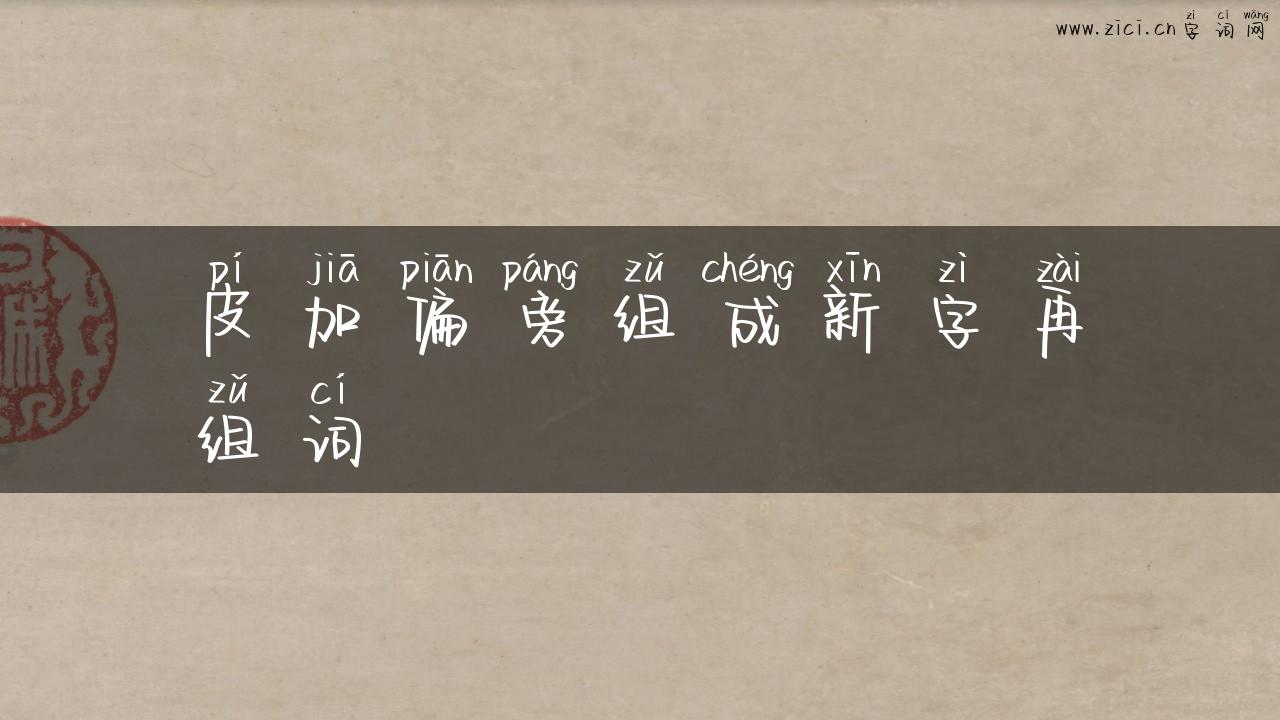 zì cí wǎng
www.zici.cn字词网
pí jiā piān páng zǔ chéng xīn zì zài
皮加偏旁组成新字再
zǔ cí
组词